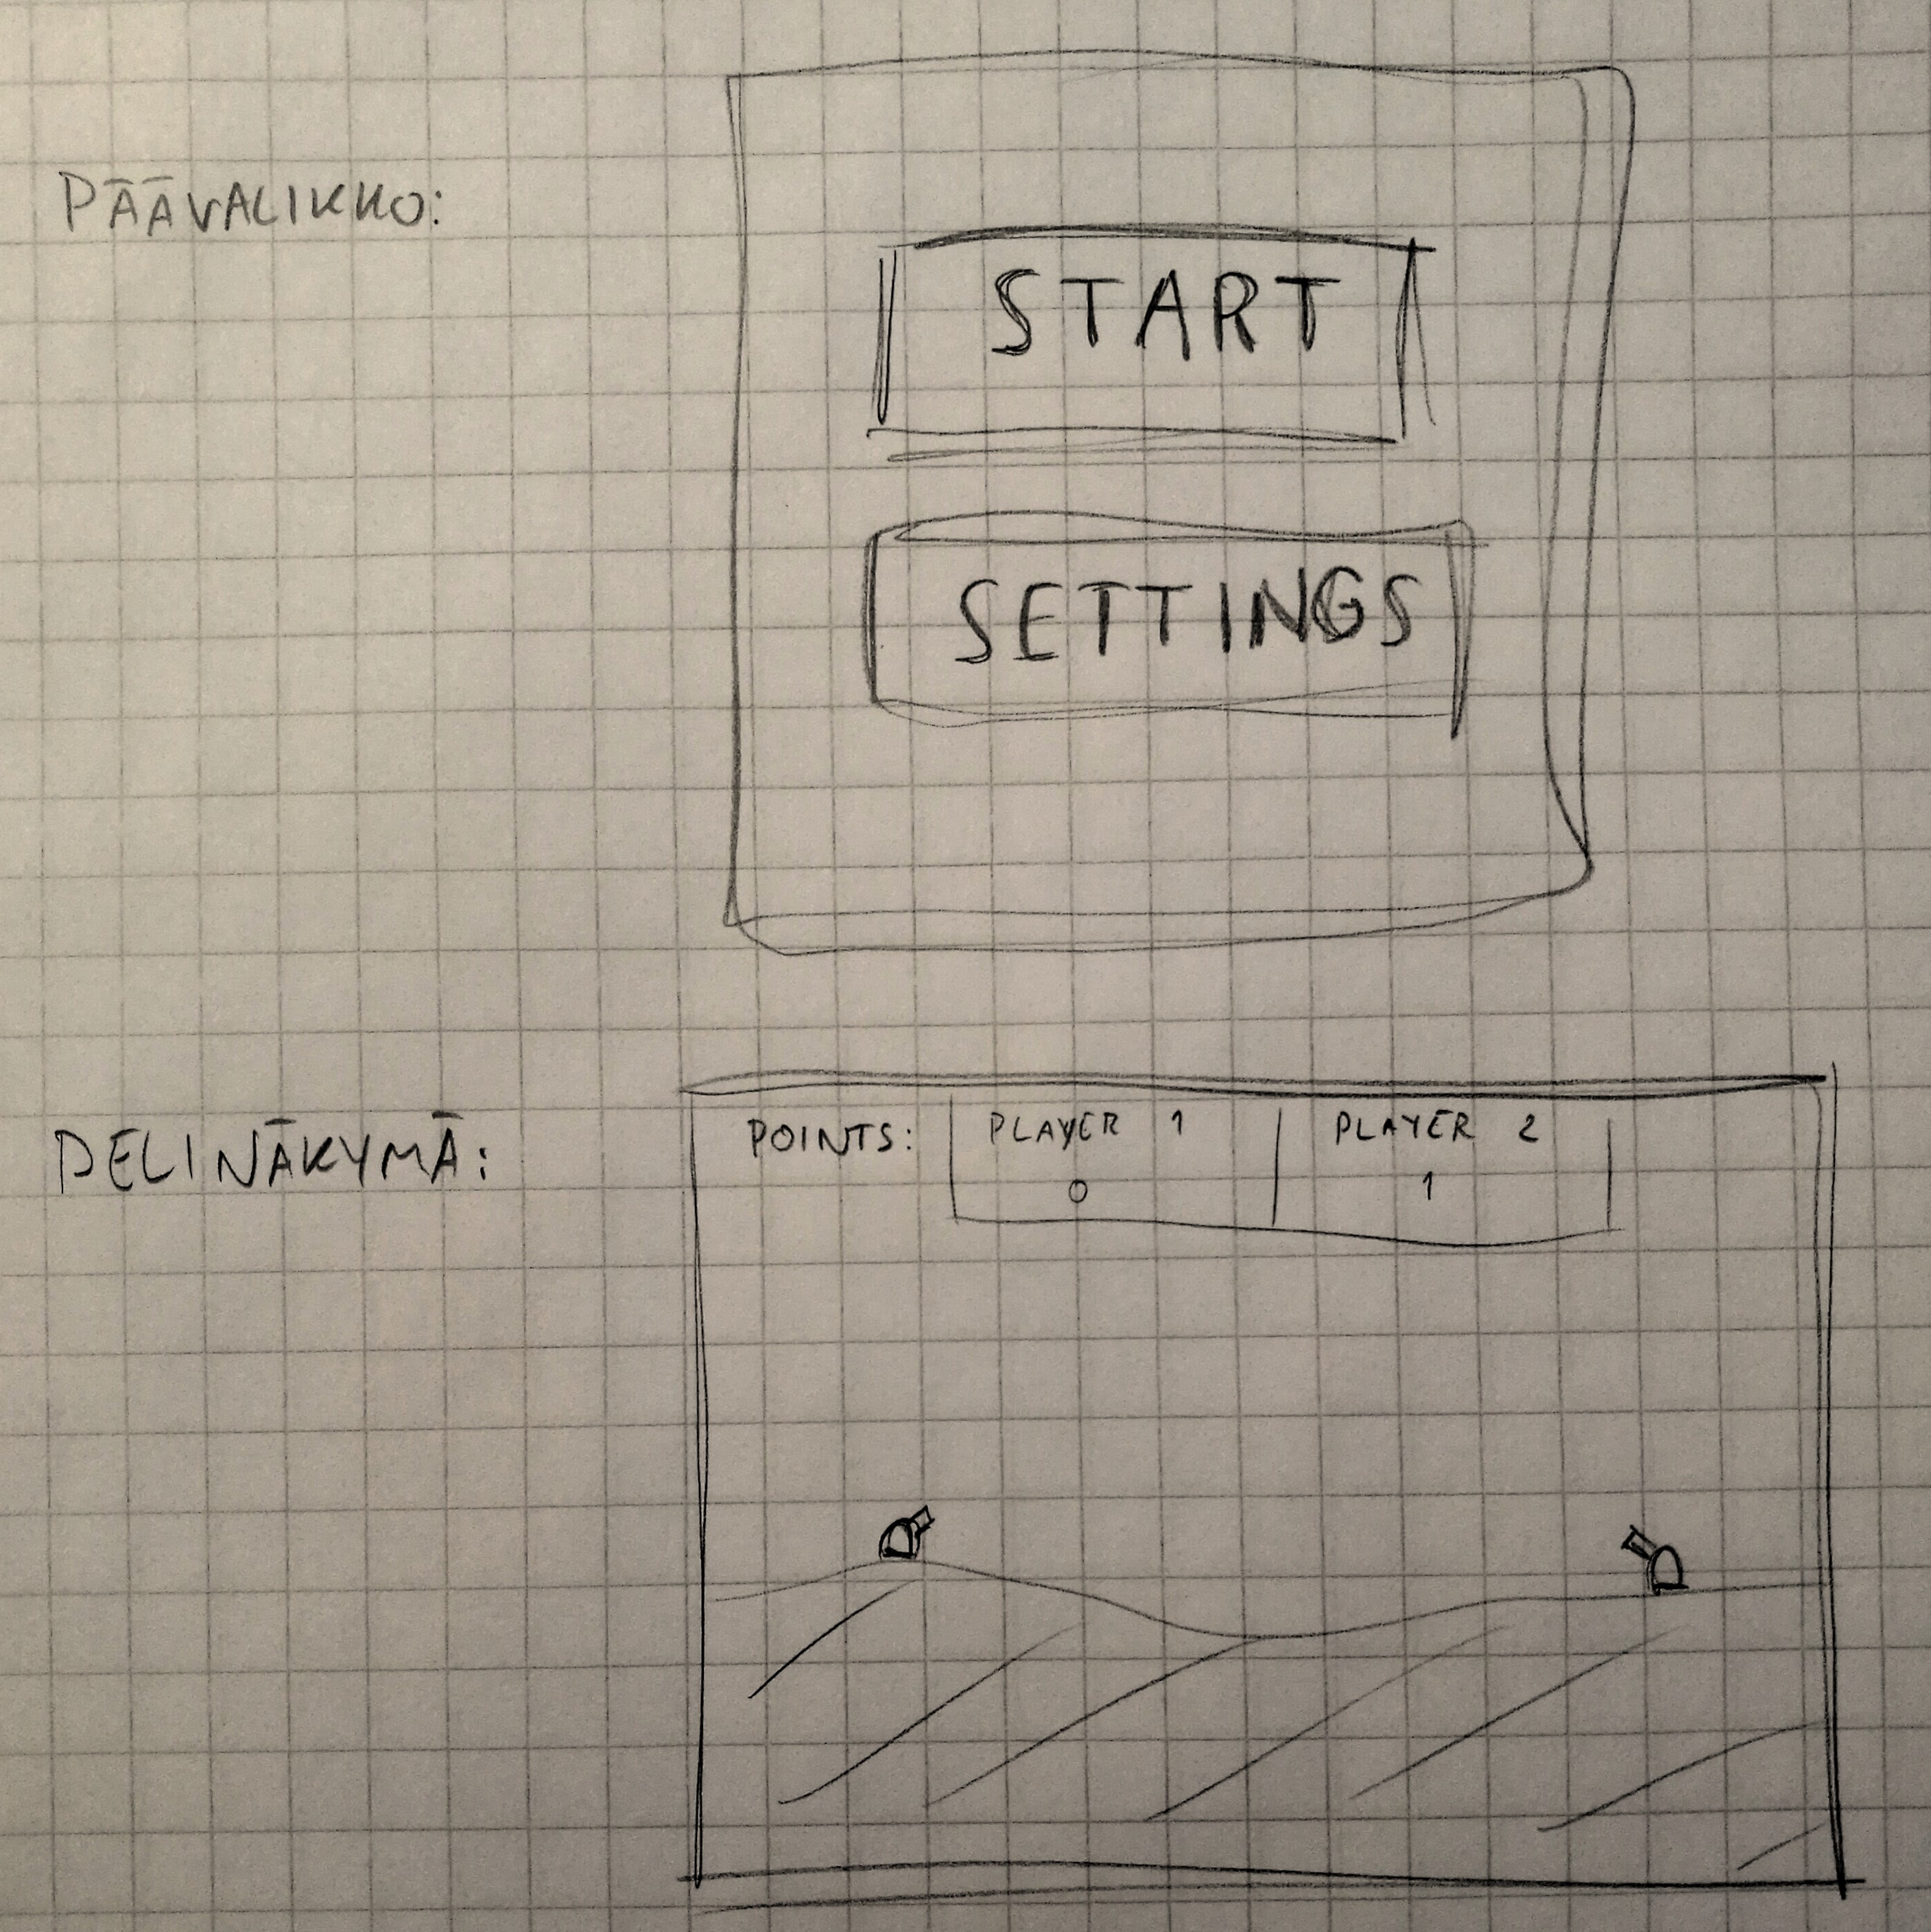 PÄÄVALIKKO:
START
SETTINGS
PELINÄKYMÄ:
POINTS: PLAYER 1 PLAYER 2
0 1